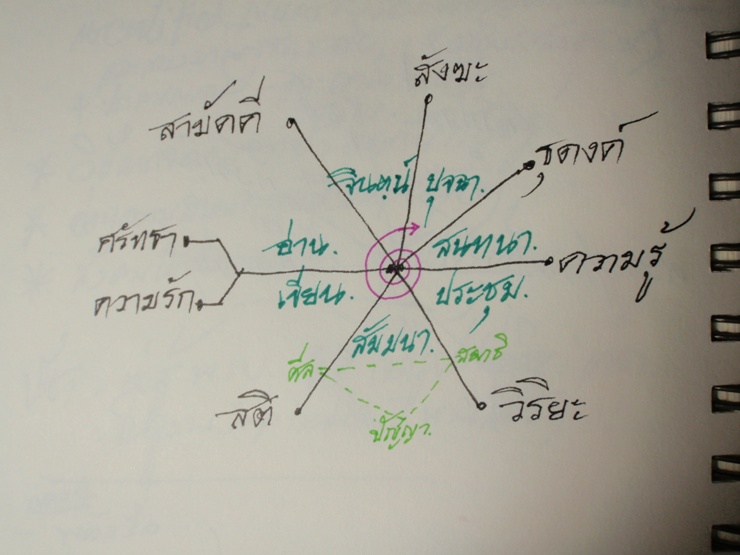 สังฆะ
สามัคคี
ธุดงค์
จินตน์
ปุจฉา.
ศรัทธา
อ่าน.
สนทนา.
ความรู้
ความรัก
เขียน.
ประชุม.
สัมมนา.
ศีล
สมาธิ
สติ
ปัญญา.
วิริยะ